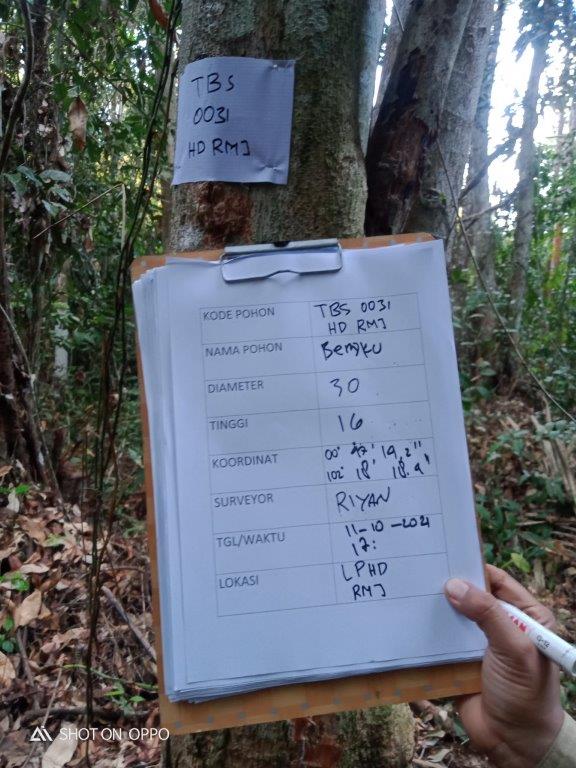 TBS
0031
HD RMJ
KODE POHON TBS 0031
HD RMJ
NAMA POHON
DIAMETER 30
TINGGI 16
KOORDINAT 00° 14,2"
102° 18' 18.9"
SURVEYOR RIYAN
TGL/WAKTU 11-10-2021
17:
LOKASI LPHD
RMJ
SHOT ON OPPO